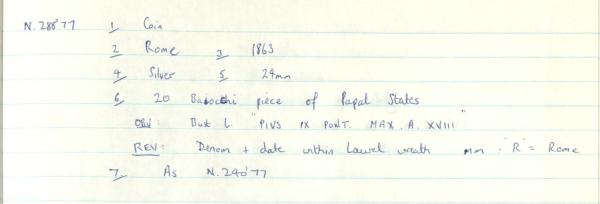 N.288'77 1 Coin
2 Rome 3 1863
4 Silver 5 24mm
6 20 Baiocchi piece of Papal States
OBV: Bust l. "PIVS IX PONT. MAX. A. XVIII"
REV: Denom + date within Laurel wreath mm. "R" = Rome
7 As N.240'77